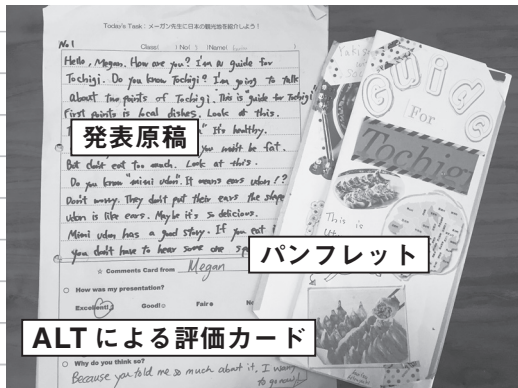 Today's Task：メーガン先生に日本の観光地を紹介しよう！
No.1
Class( ) No( ) Name(
Hello, Megan. How are you? I'm a guide for
Tochigi. Do you know Tochigi? I'm going to talk
about two points of Tochigi. This is "guide for Tochigi"
First points is local dishes. Look at this.
It's healthy.
you won't be fat.
But don't eat too much. Look at this.
Do you know "mimi udon". It means ears udon!?
Don't worry. They don't put their ears the shape
udon is like ears. Maybe it's so delicious.
Mimi udon has a good story. If you eat
you don't have to hear some one
発表原稿
パンフレット
ALTによる評価カード
☆ Comments Card from Megan
○ How was my presentation?
Excellent! Good! Fair
○ Why do you think so?
Because you told me so much about it, I want
to go now!
Guide
For
Tochigi
This is